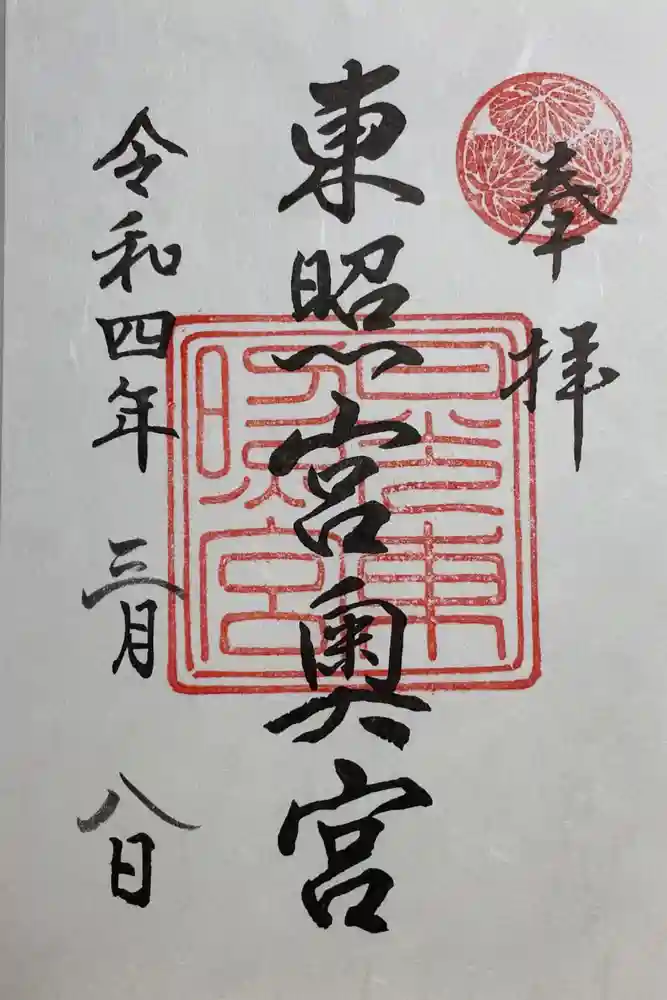 奉拝
東照宮奥宮
令和四年三月八日
日光東
照宮